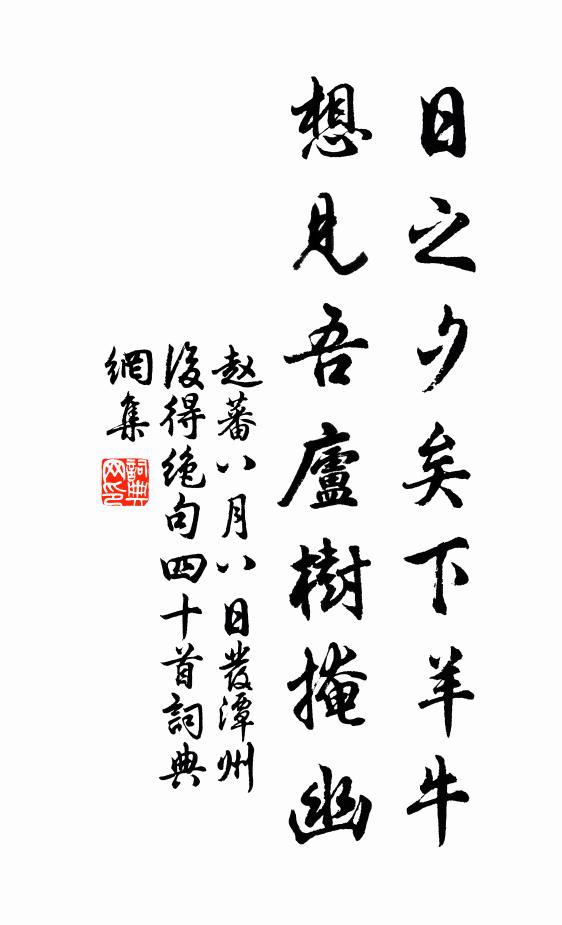 日之夕矣下羊牛
想見吾廬樹掩幽
赵蕃八月八日發潭州
後得绝句四十首詞典
網集
詞典網印